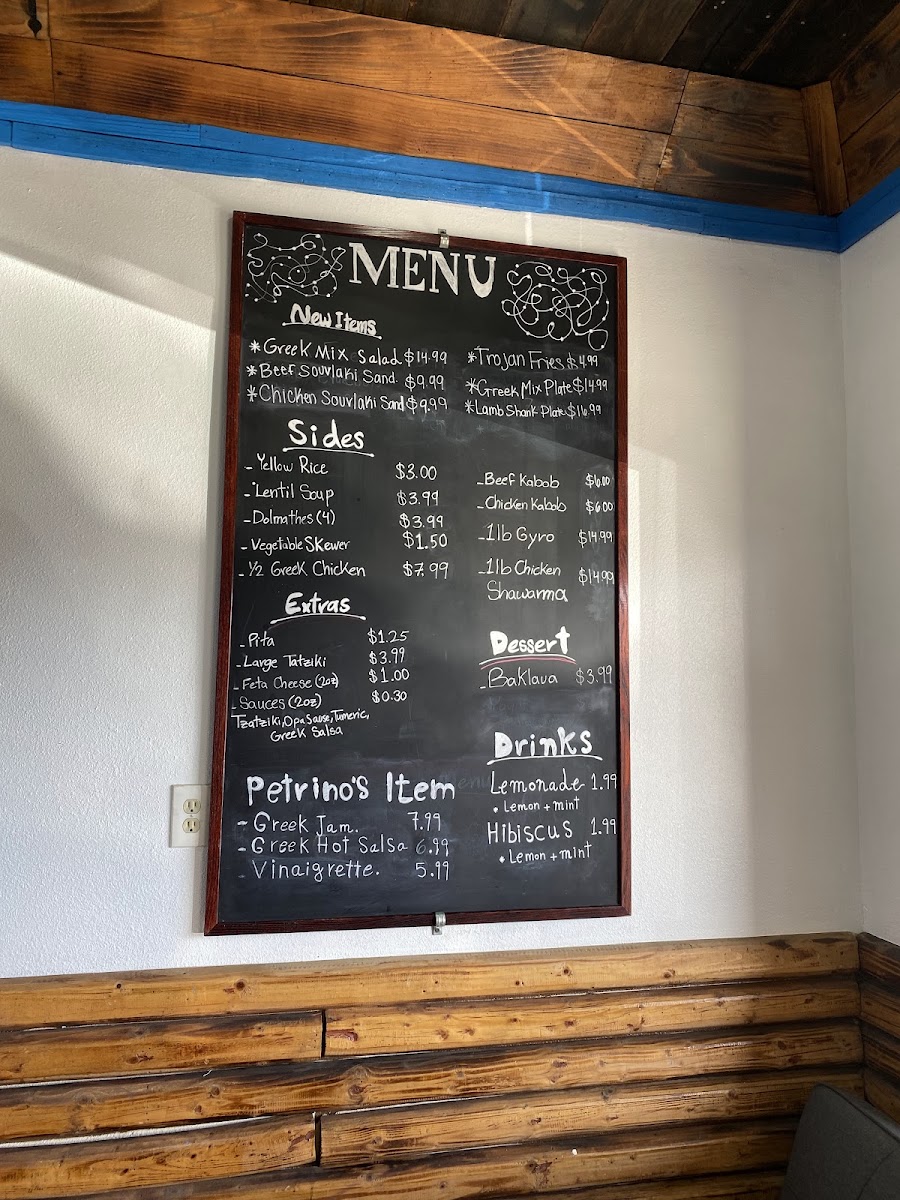 MENU
New Items
*Greek Mix Salad $14.99
*Beef Souvlaki Sand. $9.99
*Chicken Souvlaki Sand $9.99
*Trojan Fries $4.99
*Greek Mix Plate $14.99
*Lamb Shank Plate $16.99
Sides
- Yellow Rice $3.00
- Lentil Soup $3.99
- Dolmathes (4) $3.99
- Vegetable Skewer $1.50
- 1/2 Greek Chicken $7.99
- Beef Kabob $6.00
- Chicken Kabob $6.00
- 1lb Gyro $14.99
- 1lb Chicken $14.99
Shawarma
Extras
- Pita $1.25
- Large Tatziki $3.99
- Feta Cheese (2oz) $1.00
- Sauces (2oz) $0.30
Tzatziki, Opa Sause, Tumeric,
Greek Salsa
Dessert
- Baklava $3.99
Drinks
Lemonade 1.99
• Lemon + mint
Hibiscus 1.99
• Lemon + mint
Petrino's Item
- Greek Jam. 7.99
- Greek Hot Salsa 6.99
- Vinaigrette. 5.99